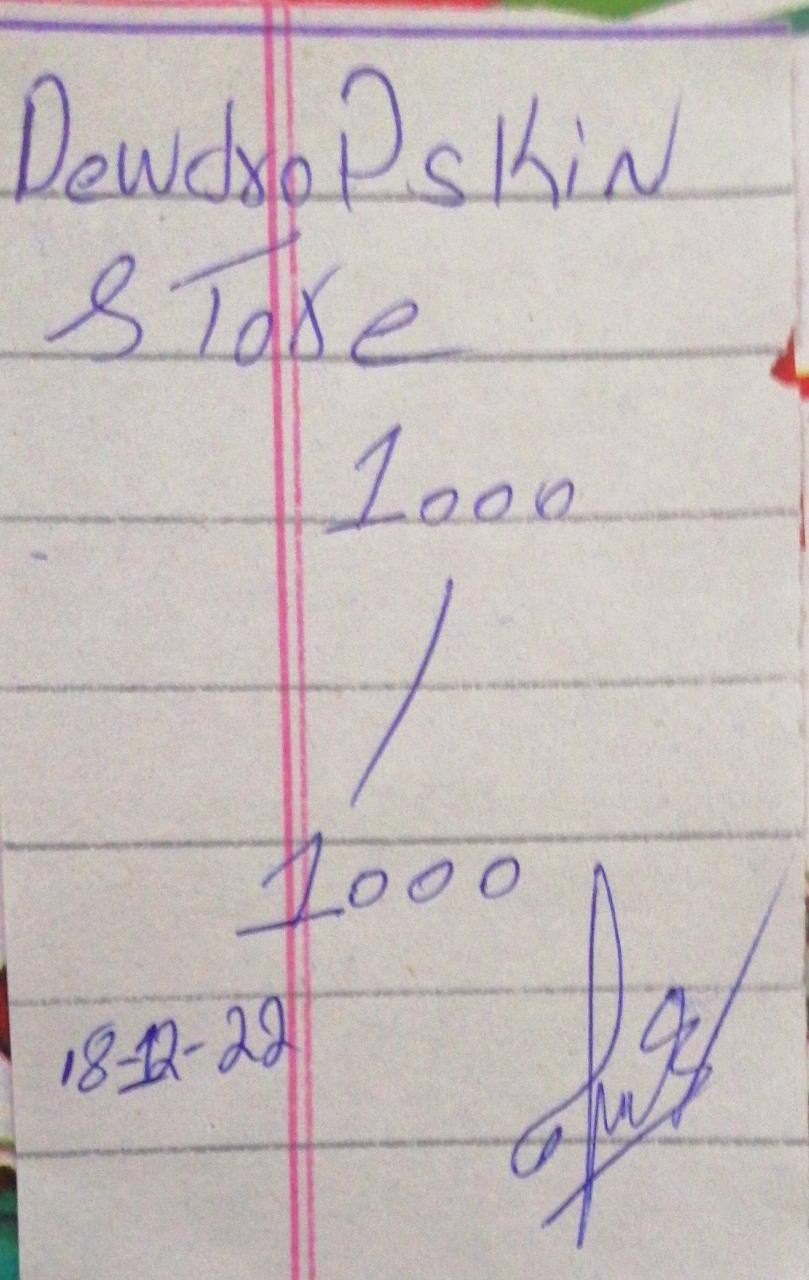 DewdroPskiN
STore
1000
/
1000
18-12-22